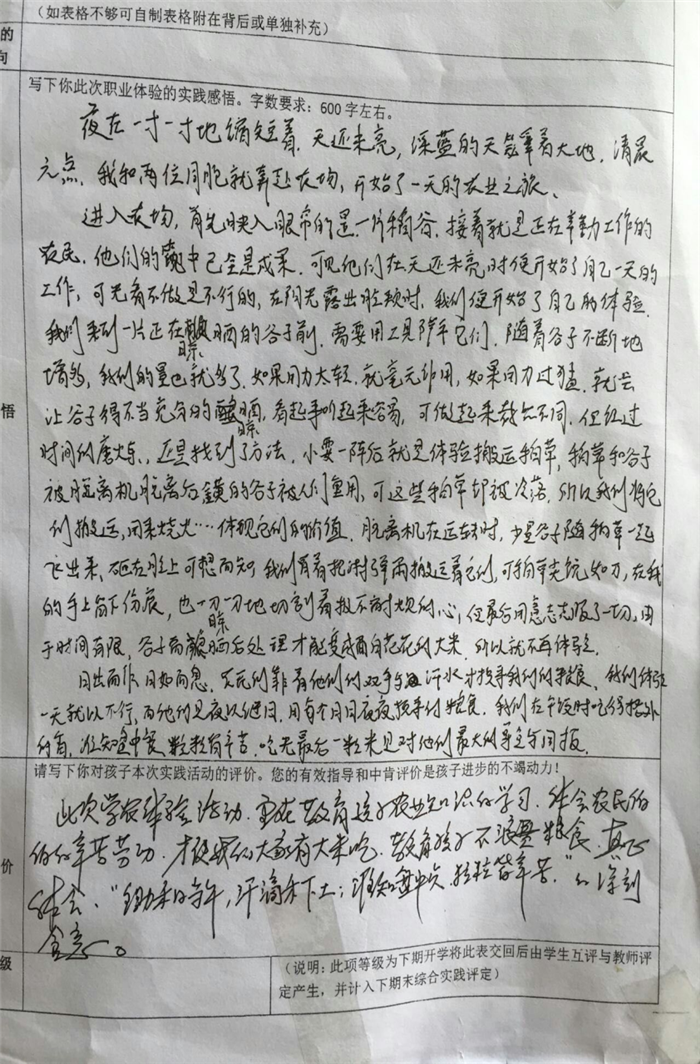 (如表格不够可自制表格附在背后或单独补充)
的
向
写下你此次职业体验的实践感悟。字数要求：600字左右。
夜在一寸一寸地缩短着，天还未亮，深蓝的天笼罩着大地，清晨
六点，我和两位同胞就奔赴农场，开始了一天的农业之旅、
进入农场，首先映入眼帘的是一片稻谷，接着就是正在辛勤工作的
农民，他们的中已全是成果，可见他们在天还未亮时便开始了自己一天的
工作，可光看不做是不行的，在阳光露出脸颊时，我们便开始了自己的体验。
我们来到一片正在晾晒的谷子前，需要用工具弄平它们，随着谷子不断地
增多，我们的量也就多了，如果用力太轻，就毫无作用，如果用力过猛，就会
悟
让谷子得不当充分的晾晒，看起来听起来容易，可做起来截然不同，但经过
时间的磨炼，还是找到了方法，小耍一阵后就是体验搬运稻草，稻草和谷子
被脱离机脱离后，的谷子被人们重用，可这些稻草却被冷落，所以我们将它
们搬运，用来烧火……体现它们的价值，脱离机在运转时，少量谷子随稻草一起
飞出来，砸在脸上可想而知，我们冒着把搬运着它们，可稻草尖锐如刀，在我
的手上留下伤痕，也一刀一刀地切割着我不耐烦的心，但最后用意志克服了一切，由
于时间有限，谷子需晾晒后处理才能变成白花花的大米，所以就不再体验。
日出而作，日如而息，农民们靠着他们的双手与汗水才换来我们的粮食，我们体验
一天就以不行，而他们是夜以继日，用每个月日夜换来的粮食，我们在午饭时吃得格外
的香，谁知道中餐，粒粒皆辛苦，吃完最后一粒米是对他们最大的尊重与回报。
请写下你对孩子本次实践活动的评价。您的有效指导和中肯评价是孩子进步的不竭动力！
此次学农体验活动，重在教育孩子农业知识的学习，体会农民伯
伯的辛苦劳动，才使我们大家有大米吃，教育孩子不浪费粮食，真正
价
体会，“锄禾日当午，汗滴禾下土；谁知盘中餐，粒粒皆辛苦。”的深刻
含意。
级
(说明：此项等级为下期开学将此表交回后由学生互评与教师评
定产生，并计入下期末综合实践评定)